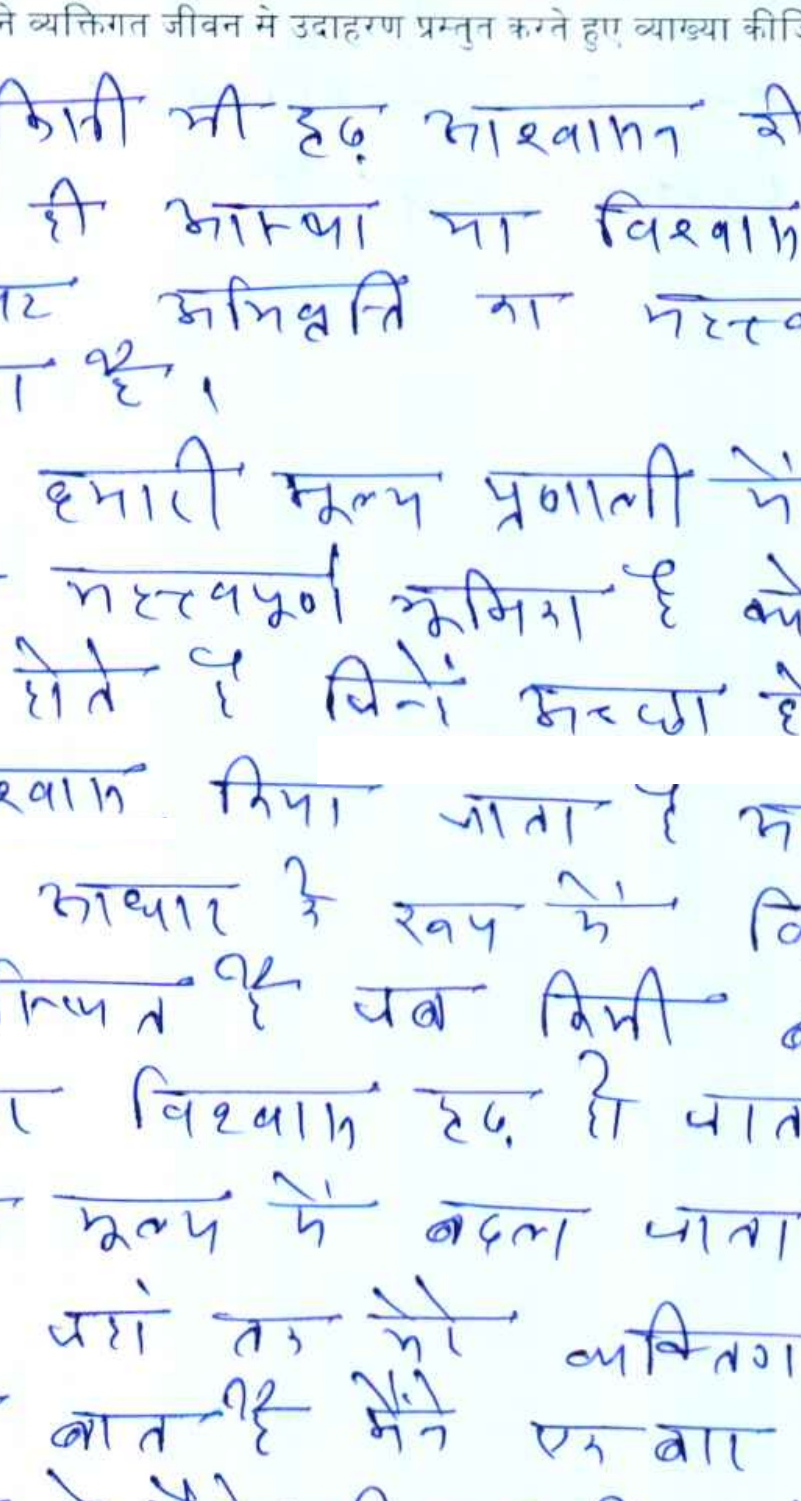 ने व्यक्तिगत जीवन से उदाहरण प्रस्तुत करते हुए व्याख्या कीजि
किसी भी दृढ़ आश्वासन की
ही आस्था या विश्वास
अभिवृत्ति का महत्त्व
है।
हमारी मूल्य प्रणाली में
महत्त्वपूर्ण भूमिका है क्यो
होते है जिनमें अच्छा हो
श्वास किया जाता है
आधार के रूप में वि
स्थित है जब किसी
विश्वास दृढ़ हो जात
मूल्य में बदल जाता
जहां तक मेरे व्यक्तिग
बात है मैंने एक बार